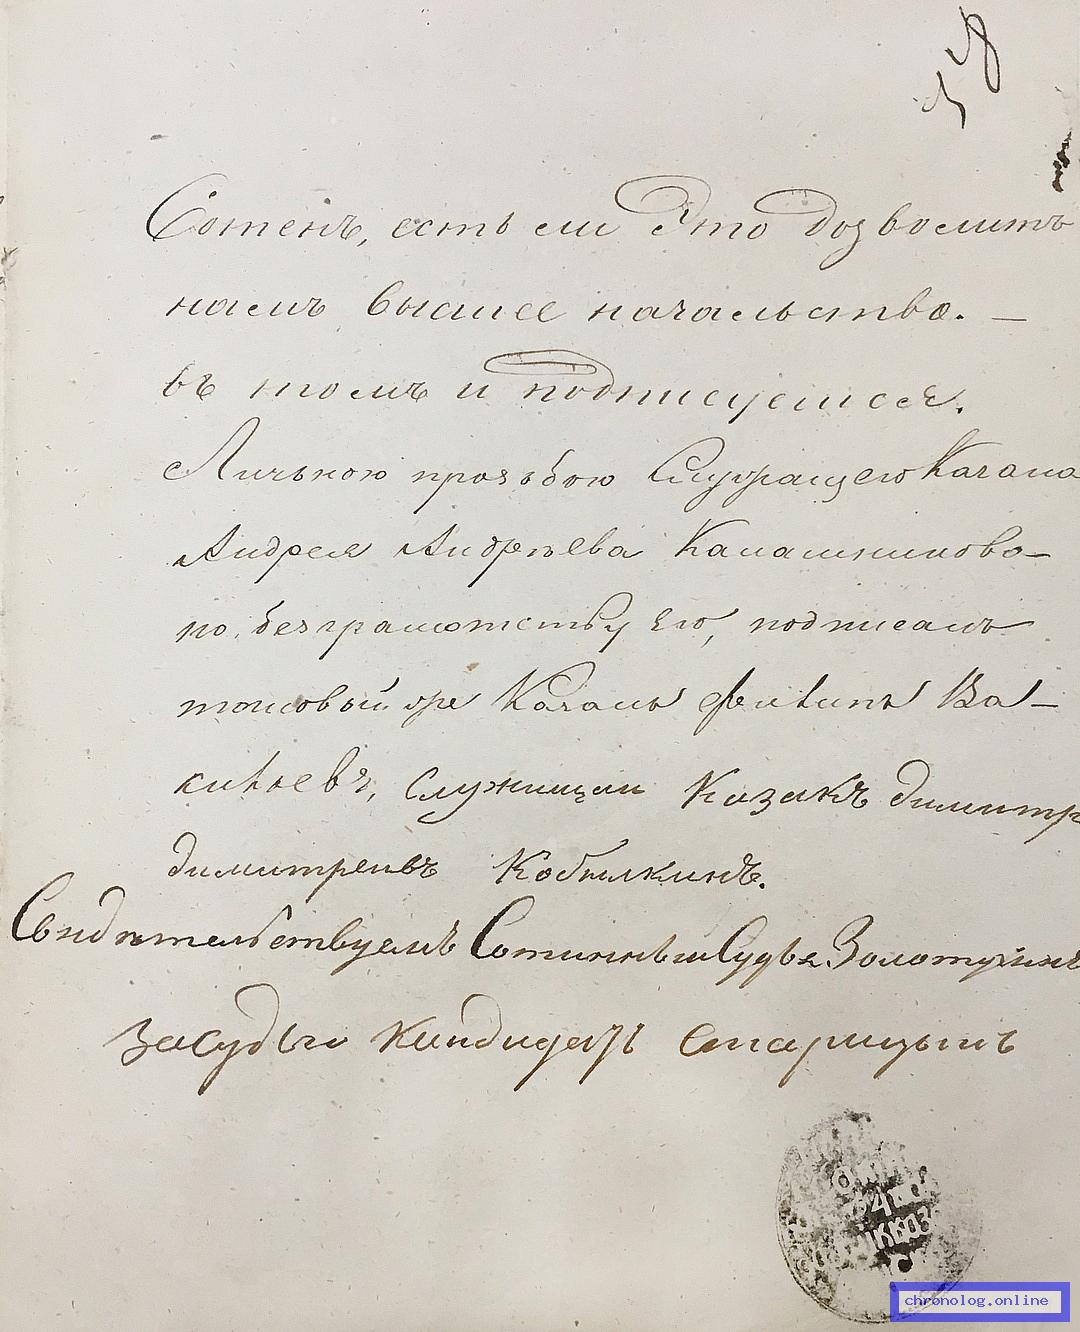 58
Сотенъ, есть ли Это дозволитъ
намъ высшее начальство. —
въ томъ и подписуемся.
Личьною прозьбою Служащего Казака
Андрея Андрѣева Калашникова —
по безграмотству Его, подписалъ
таковый же Казакъ Филипъ Ва —
сильевъ, служищаи Казакъ димитр
димитреивъ Кобылкинъ.
Свидѣтельствуемъ Сотинныи Судья Золотухинъ
засудью кандидатъ Старицынъ
chronolog.online